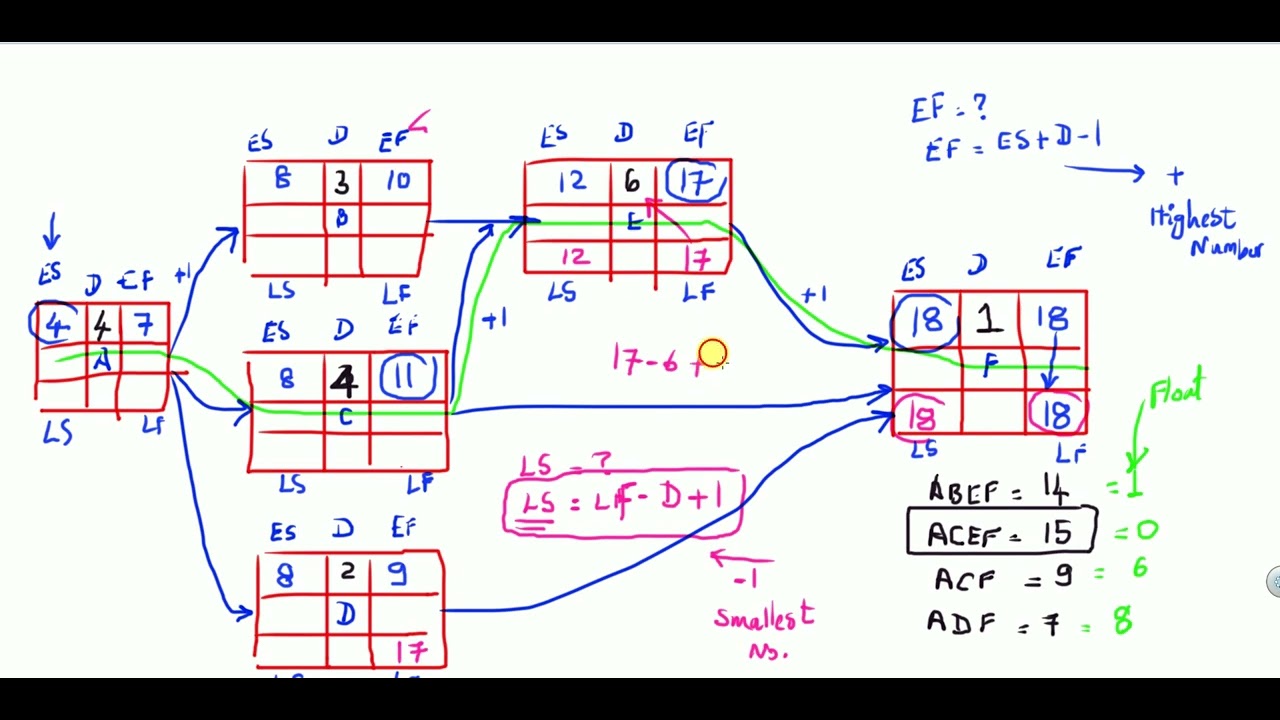 EF = ?
EF = ES+D-1
+
Highest
Number
ES D EF
8 3 10
B
LS LF
ES D EF
12 6 17
E
12 17
LS LF
ES D EF
4 4 7
A
LS LF
+1
ES D EF
8 4 11
C
LS LF
+1
17-6+
+1
ES D EF
18 1 18
F
18 18
LS LF
Float
LS = ?
LS = LF - D+1
-1
Smallest
No.
ES D EF
8 2 9
D
17
ABEF = 14 = 1
ACEF = 15 = 0
ACF = 9 = 6
ADF = 7 = 8